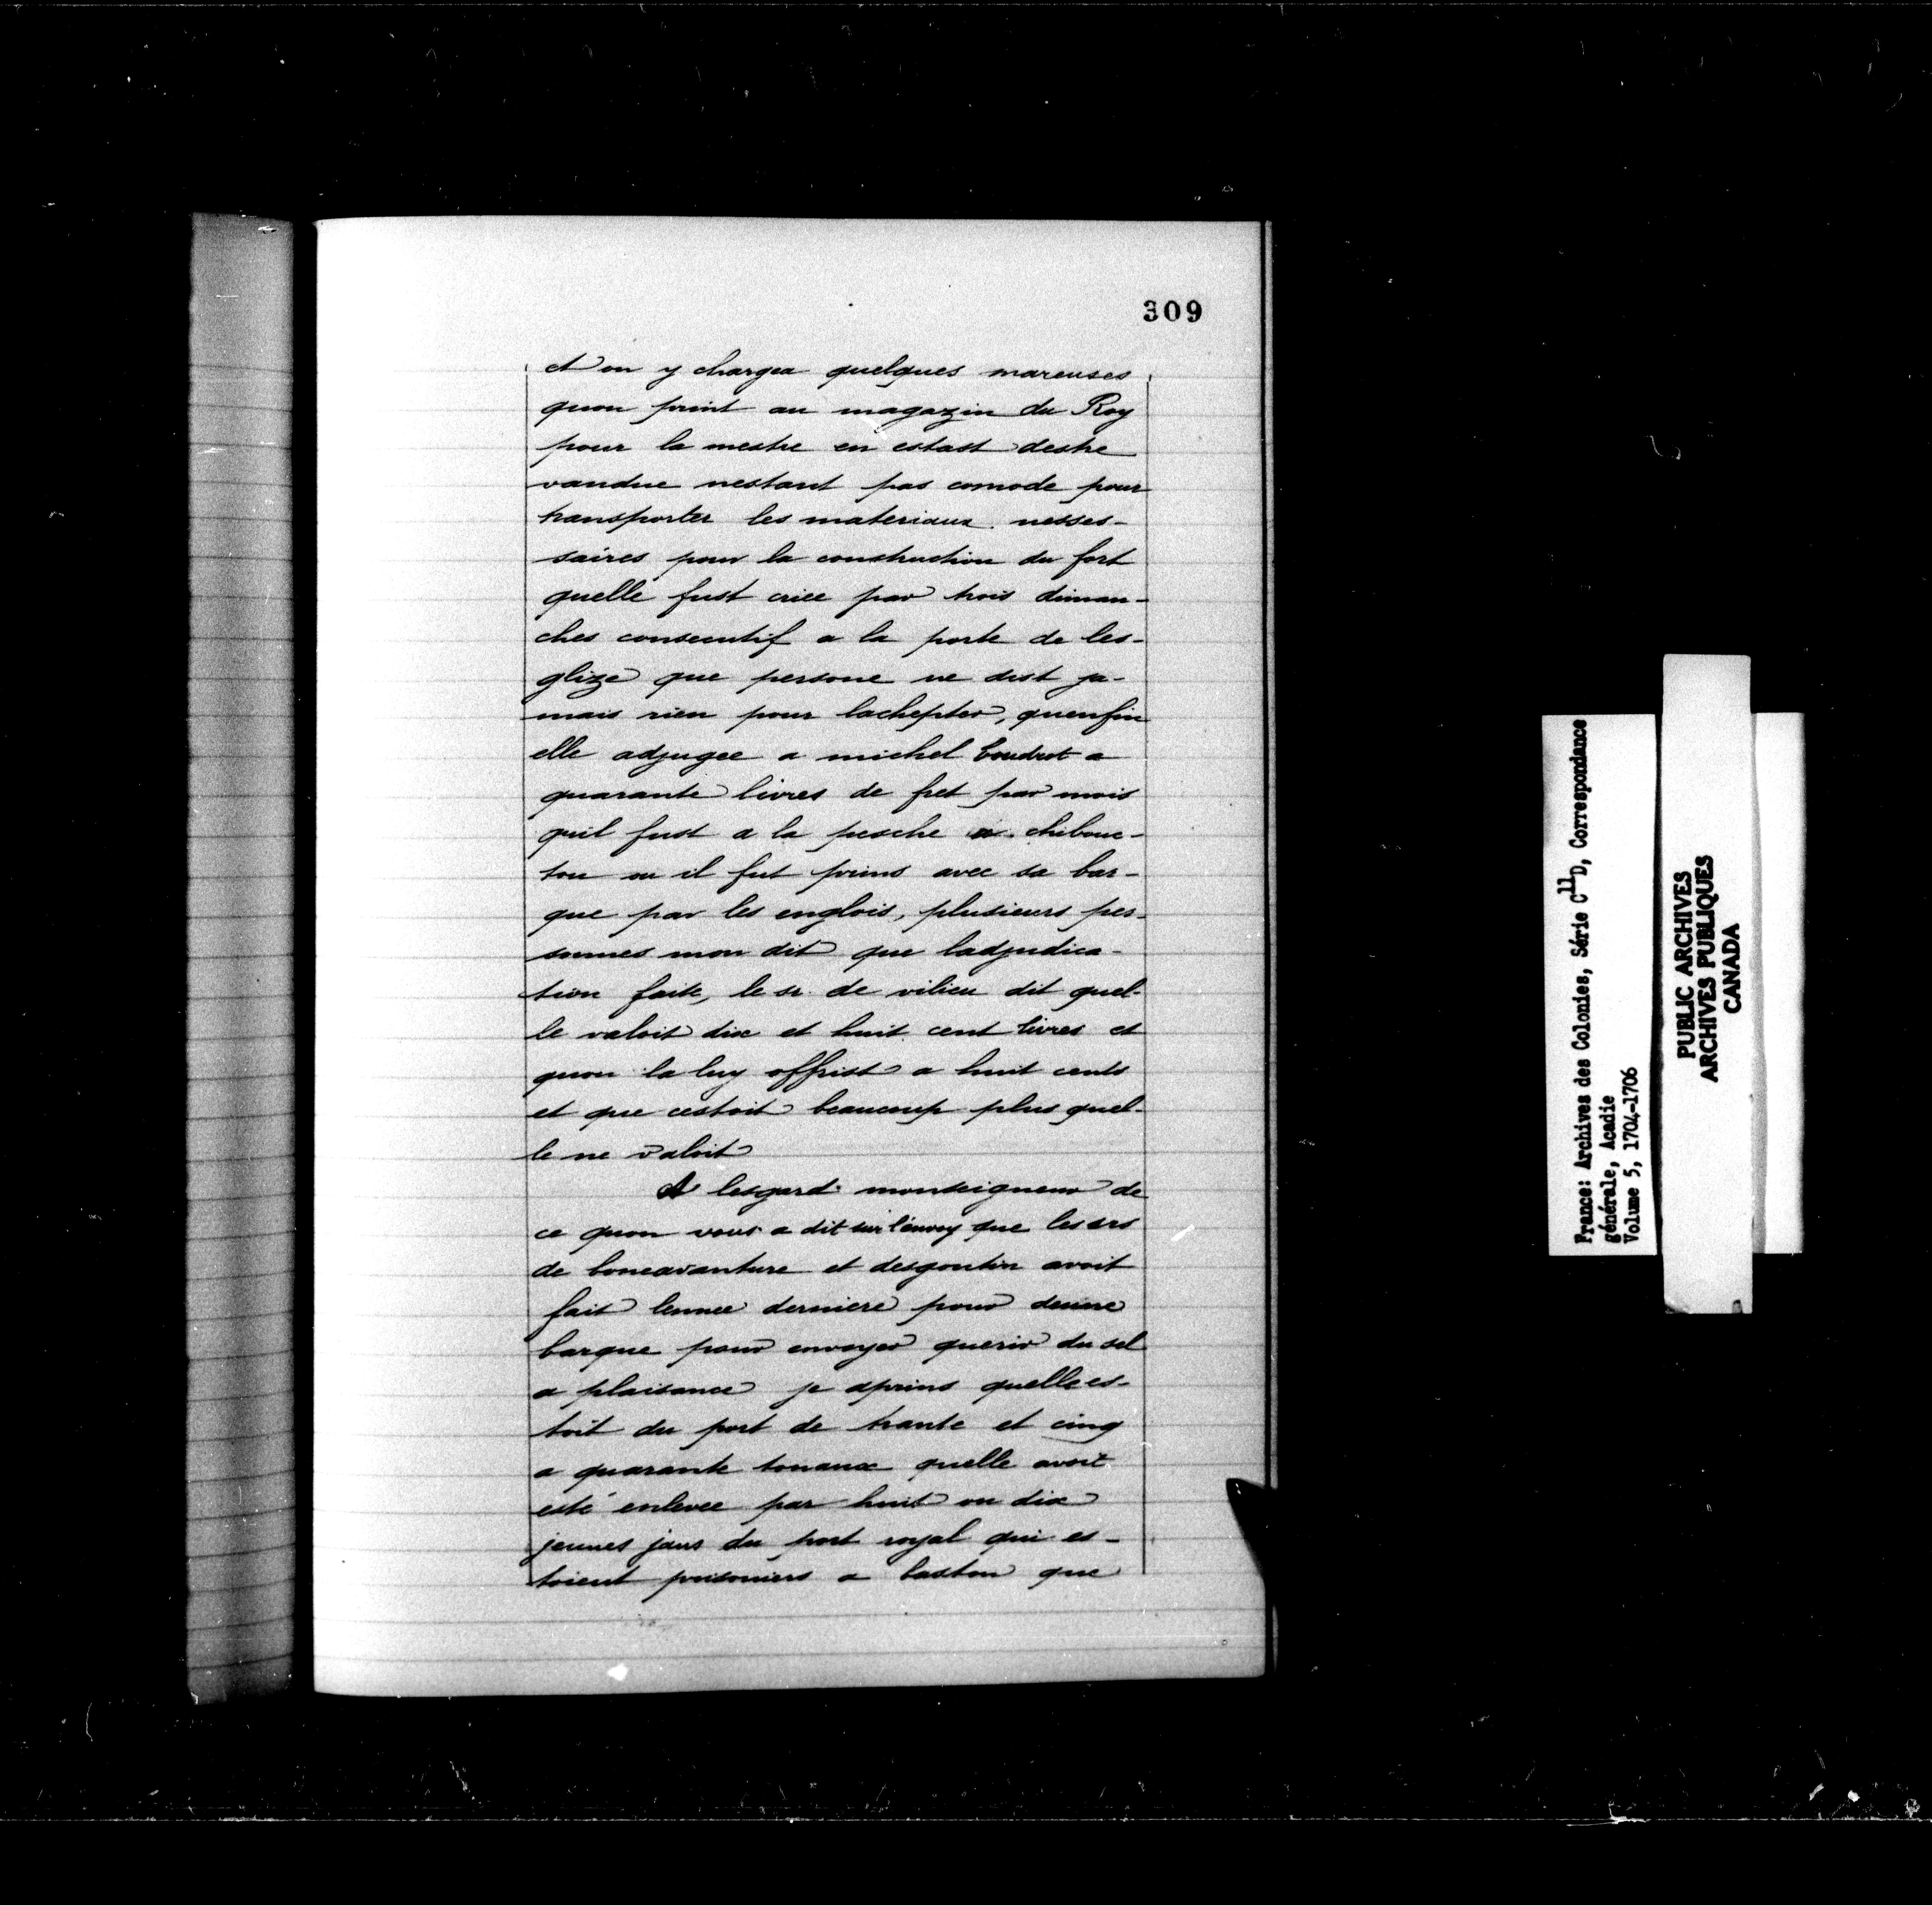 309
et on y chargea quelques mareuses
quon print au magazin du Roy
pour la mestre en estast destre
vandue nestant pas comode pour
transporter les materiaux nesses-
saires pour la construction du fort
quelle fust criee par trois diman-
ches consecutif a la porte de les-
glize que persone ne dist ja-
mais rien pour lachepter, quenfin
elle adjugee a michel boudrot a
quarante livres de fret par mois
quil fust a la pesche a chibouc-
tou ou il fut prins avec sa bar-
que par les englois, plusieurs per-
sonnes mon dit que ladjudica-
tion faite, le sr. de vilieu dit quel-
le valoit dix et huit cent livres et
quon la luy offrist a huit cents
et que cestoit beaucoup plus quel-
le ne valoit
A lesgard monseigneur de
ce quon vous a dit sur l'envoy que les srs
de boneavanture et desgoutin avoit
fait lennee derniere pour deune
barque pour envoyer querir du sel
a plaisance je aprins quelle es-
toit du port de trante et cinq
a quarante tonaux quelle avoit
esté enlevee par huit ou dix
jeunes jans du port royal qui es-
toient prisoniers a baston que
France: Archives des Colonies, Série C11D, Correspondance
générale, Acadie
Volume 5, 1704-1706
PUBLIC ARCHIVES
ARCHIVES PUBLIQUES
CANADA